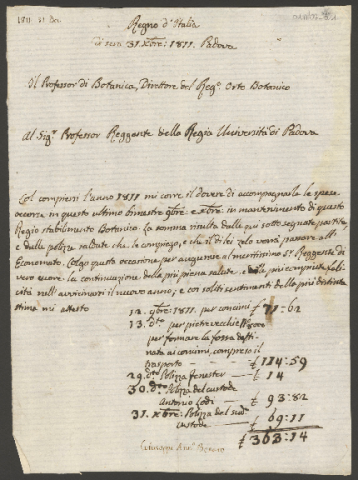 1811. 31 Dec
Regno d'Italia
di sera 31 Xbre: 1811. Padova
Il Professor di Botanica, Direttore del Regº. Orto Botanico
Al Sigr. Professor Reggente della Regia Università di Padova
Col compiersi l'anno 1811 mi corre il dovere di accompagnarle le spese
occorse in questo ultimo bimestre 9bre: e Xbre: in mantenimento di questo
Regio stabilimento Botanico. La somma risulta dalle qui sotto segnate partite,
e dalle polizze saldate che le compiego, e che il di lei zelo vorrà passare all'
Economato. Colgo questa occasione per augurare al meritissimo Sr. Reggente di
vero cuore la continuazione della più piena salute e della più compiuta feli-
cità nell'avvicinarsi il nuovo anno; e coi soliti sentimenti della più distinta
stima mi attesto
12. 9bre: 1811. per concimi £ 71:62
13. dto. per pietre vecchie
per formare la fossa desti-
nata ai concimi, compreso il
trasporto £ 114:59
29. dto Polizza fenester £ 14
30. dto Polizza del custode
Antonio Lodi £ 93:82
31. Xbre: Polizza del sudo
custode £ 69:11
£ 363:14
Giuseppe Anto. Bonato